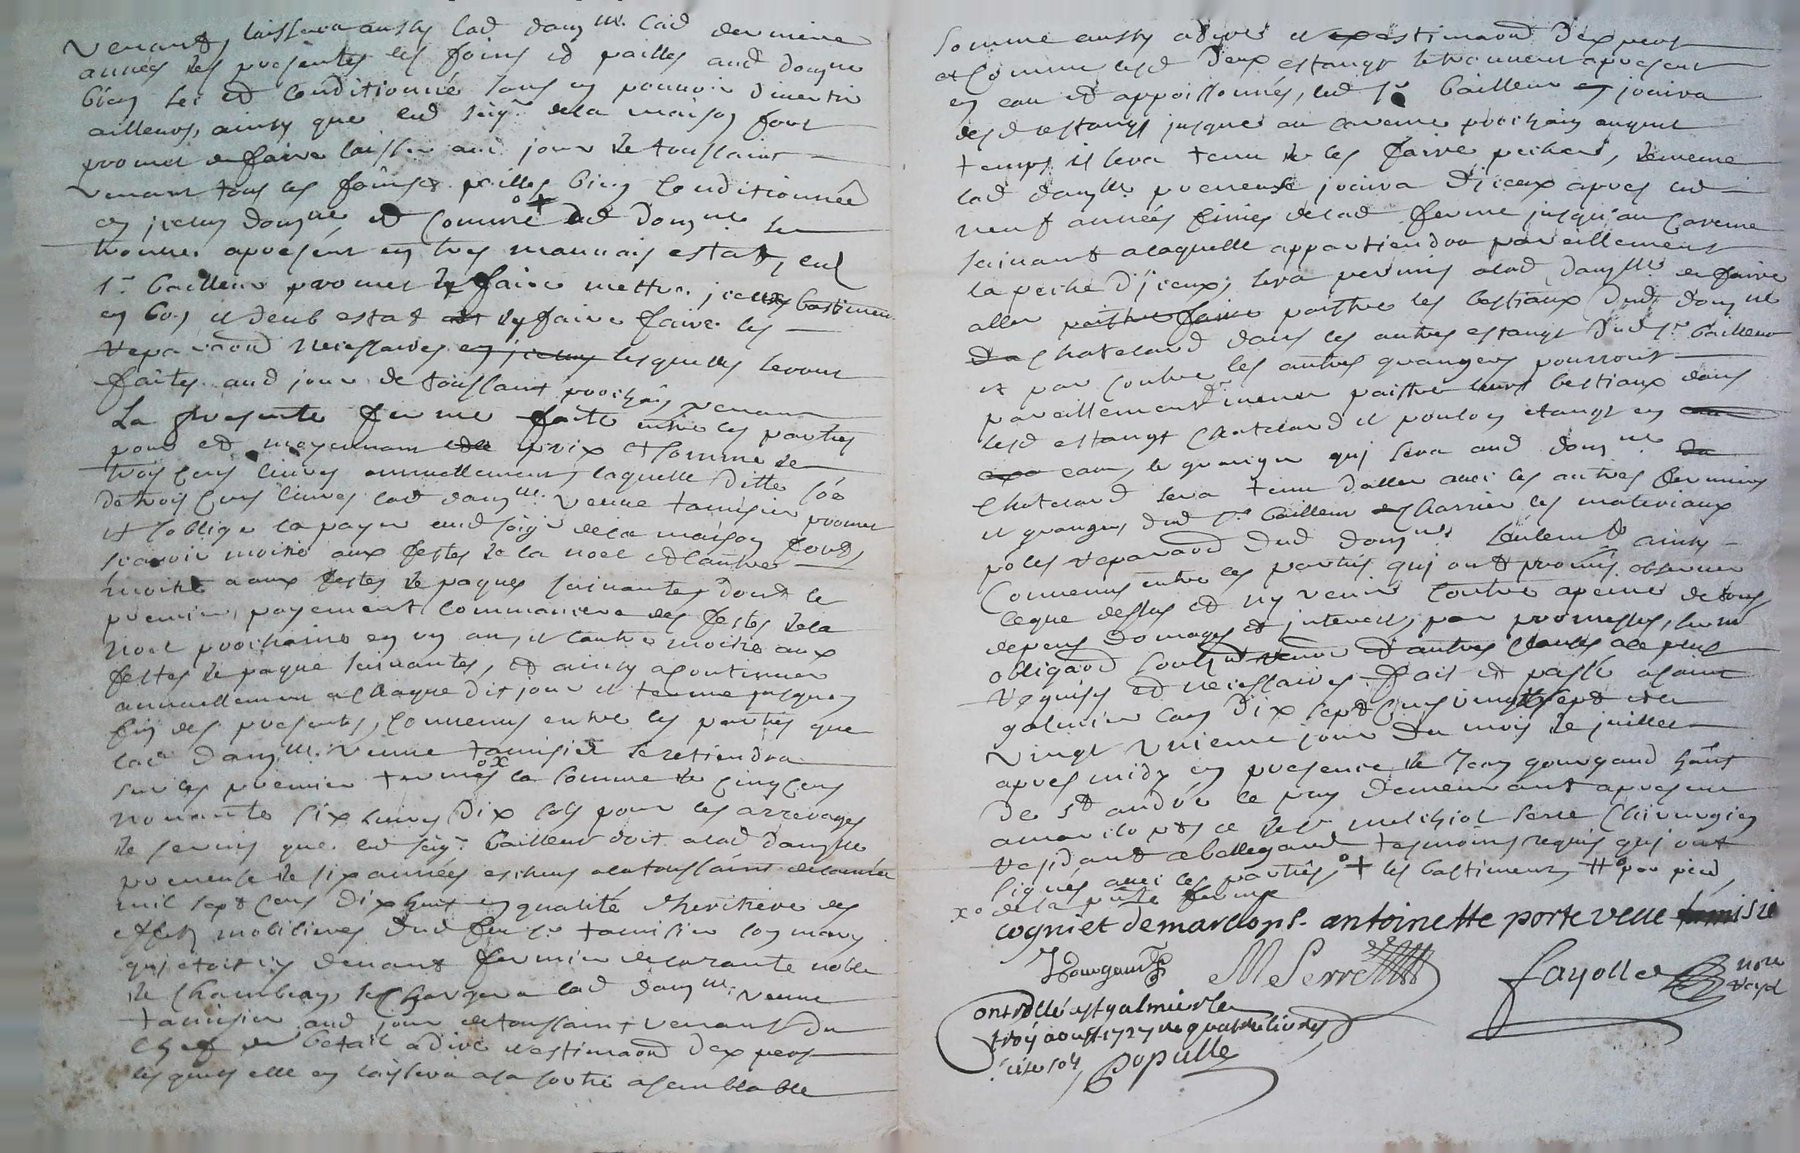 venant, laissera aussy lad. damlle lad. derniere
année des presentes les foins et pailles aud. domne
bien sec et conditionné sans en pouvoir divertir
ailleurs, ainsy que led. seigr de la maison fort
promet de faire laisser aud. jour de toussaint
venant tous les foins et pailles bien conditionnée
en iceluy domne, et comme led. domne se
trouve apresent en tres mauvais estat, led.
sr bailleur promet de faire mettre iceux bastiment
en bon et deub estat et dy faire faire les
reparaons necessaires en iceluy lesquelles seront
faites aud. jour de toussaint prochain venant
La presente ferme faite entre les parties
pour et moyennant le prix et somme de
trois cens livres annuellement laquelle ditte soe
de trois cens livres lad. damlle veuve tamisier promet
et soblige la payer aud. seigr de la maison fort,
scavoir moitié aux festes de la noel et lautre
moitié aux festes de paques suivantes dont le
premier payement commancera des festes de la
noel prochaine en un an, et lautre moitié aux
festes de paque suivantes, et ainsy a continuer
annuellement a chaque dit jour et terme jusques
fin des presentes, convenus entre les parties que
lad. damlle veuve tamisier se retiendra
sur les premier termes la somme de cinq cens
nonante six livres dix sols pour les arrerages
de servis que led. seigr bailleur doit a lad. damlle
preneuse de six années eschus a la toussaint de lannée
mil sept cens dix huit en qualité dheritiere des
effets mobiliaires dud. feu sr tamisier son mary
qui etoit cy devant fermier de la rante noble
de Chambery, se chargera lad. damlle veuve
tamisier aud. jour de toussaint venant du
chef de betail a dire et estimaon dexpers
lesquels elle en laissera a sa sortie a semblable
somme aussy a dire et estimaon dexpers
et comme lesd. deux estangs se trouvent apresent
en eau et appoissonnés, led. sr bailleur jouira
desd. estangs jusques au careme prochain auquel
temps il sera tenu de les faire pecher, de meme
lad. damlle preneuse jouira diceux apres led.
neuf années finies de lad. ferme jusqu'au careme
suivant a laquelle appartiendra pareillement
la peche diceux, sera permis a lad. damlle de faire
aller paitre les bestiaux dud. domne
du Chatelard dans les autres estangs dud. sr bailleur
et par contre les autres grangers pourront
pareillement mener paitre leurs bestiaux dans
lesd. estangs Chatelard et poulon etangs en
eau, le granger qui sera aud. domne du
Chatelard sera tenu daller avec les autres fermiers
et grangers dud. sr bailleur charrier les materiaux
po les reparaons dud. domne seulemt ainsy
convenus entre les parties qui ont promis observer
ce que dessus et ny venir contre a peine de tous
depens domages et interests, par promesses, serm
obligaons soubz. et autres clauses a ce plus
requises et necessaires fait et passé a saint
galmier lan dix sept cens vingt sept et le
vingt unieme jour du mois de juillet
apres midy en presence de Jean gourgaud hant
de st andré le puy demeurant apresent
a marclop et de sr melchiol serre Chirurgien
residant a bellegarde tesmoins requis qui ont
signés avec les parties, + les bastiments # par pied
x° de la pnte ferme
cogniet demarclops. antoinette porte veue tamisié
Gourgaud M Serre fayolle nore royal
Controllé a st galmier le
troy aout 1727 re quatre livres
seise sols
Populle